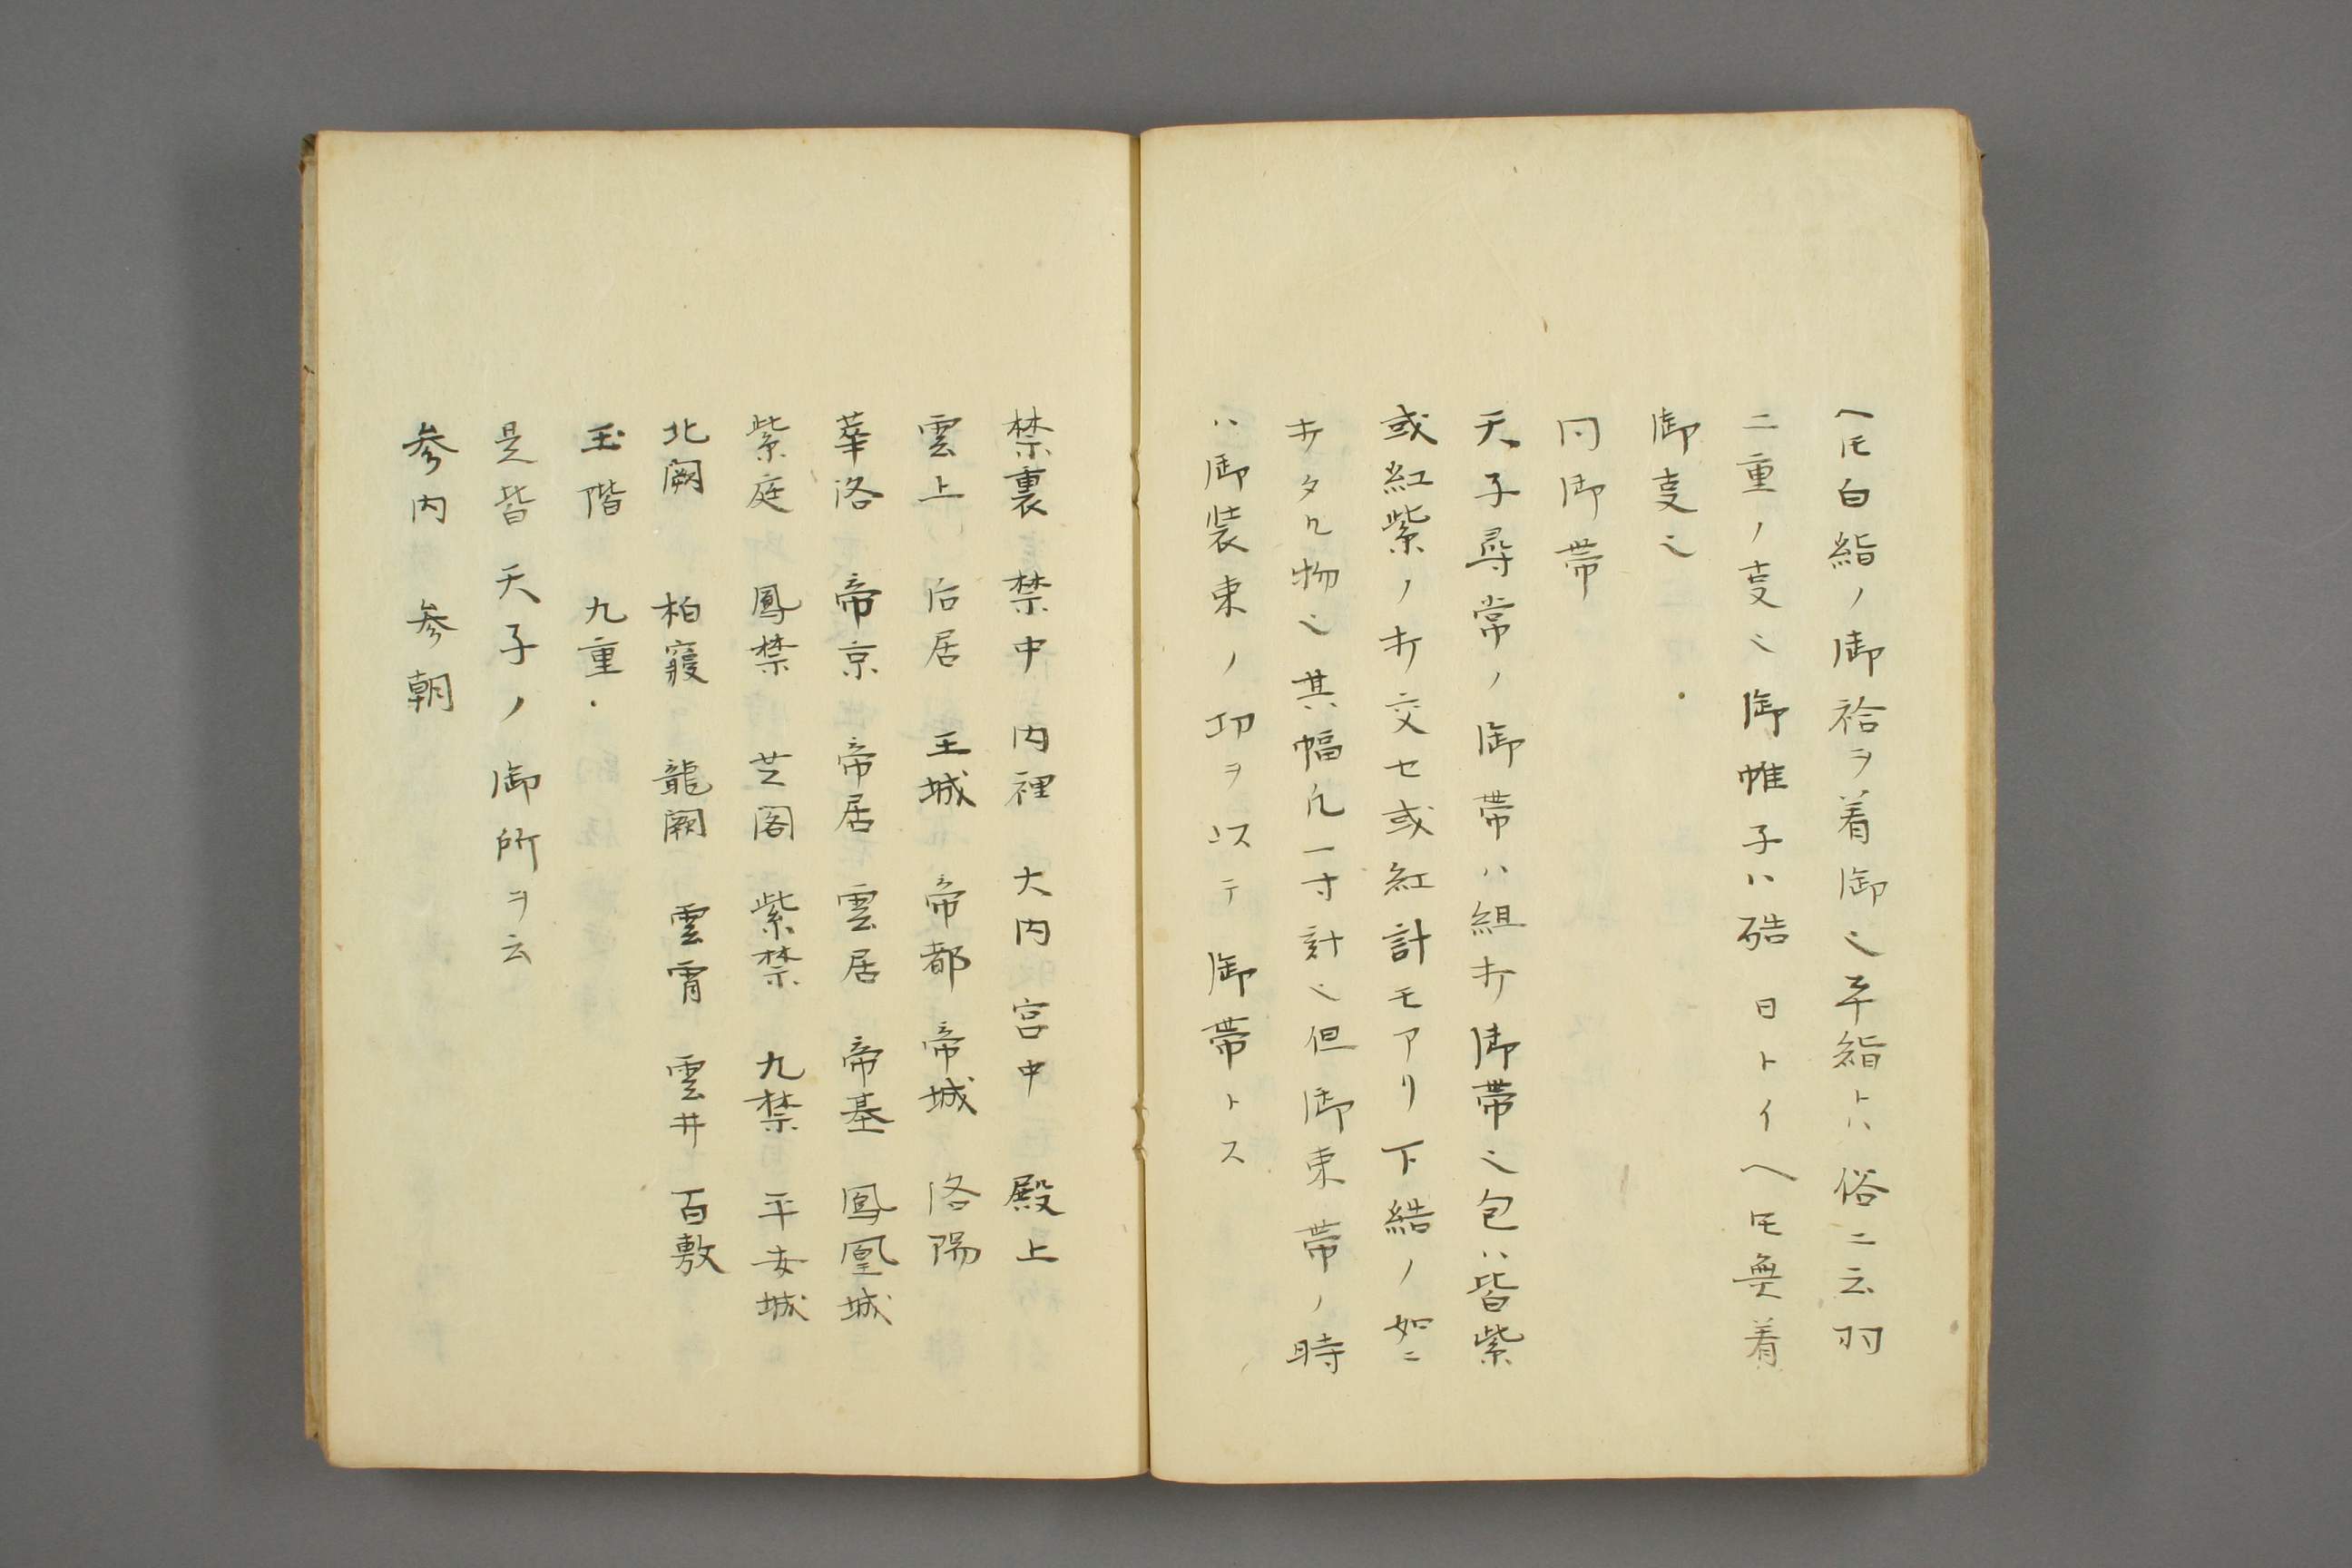 ヘ𪜈白絹ノ御袷ヲ着御也平絹トハ俗ニ云羽
二重ノ㕝也御帷子ハ碏日トイヘ𪜈無着
御㕝也
同御帯
天子尋常ノ御帯ハ組打御帯也色ハ皆紫
或紅紫ノ打交セ或紅計モアリ下緒ノ如ニ
打タル物也其幅凡一寸計也但御束帯ノ時
ハ御装束ノ切ヲ以テ御帯トス
禁裏 禁中 内裡 大内 宮中 殿上
雲上 后居 王城 帝都 帝城 洛陽
華洛 帝京 帝居 雲居 帝基 鳳凰城
紫庭 鳳禁 芝閣 紫禁 九禁 平安城
北闕 柏寝 龍闕 雲霄 雲井 百敷
玉階 九重
是皆天子ノ御所ヲ云
参内 参朝